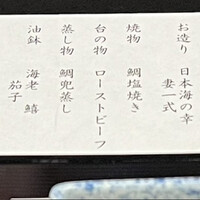 お造り 日本海の幸
妻一式
焼物 鯛塩焼き
台の物 ローストビーフ
蒸し物 鯛兜蒸し
油鉢 海老 鱚
茄子